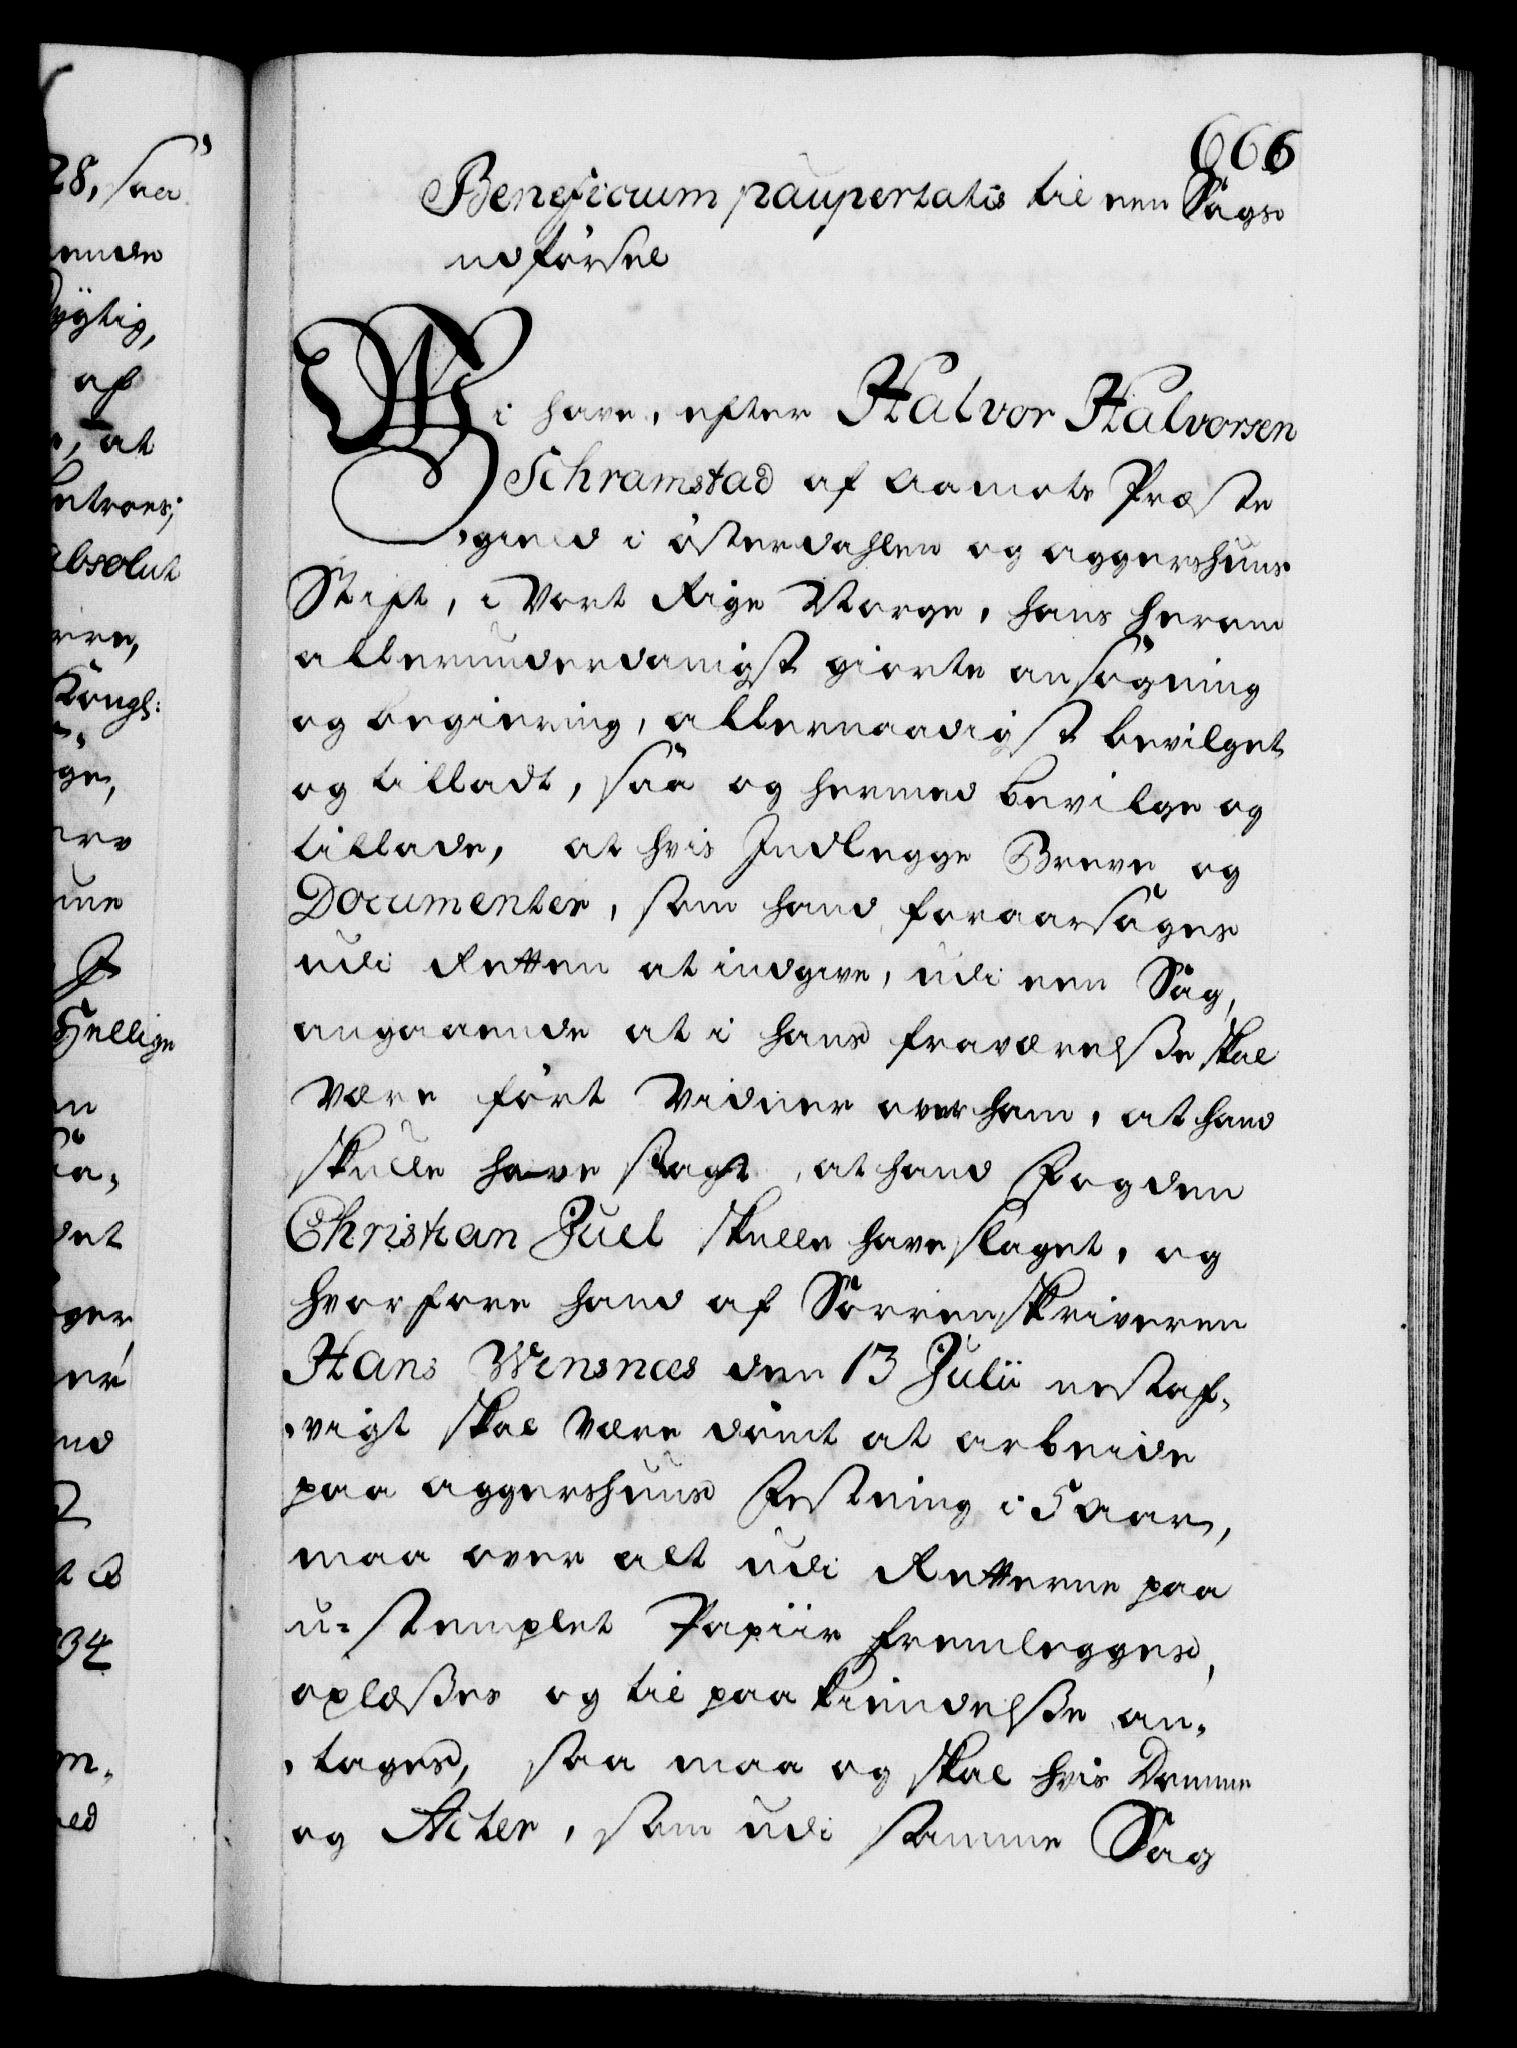 28, saa
666
Beneficium paupertatis til een Sags
udførsel
Wi have, efter Halvor Halvorsen
Schramstad af Aamots Præste
gield i Österdahlen og Aggershuus
Stift, i Vort Rige Norge, hans herom
allerunderdanigst giorte ansøgning
og begiering, allernaadigst bevilget
og tilladt, saa og hermed bevilge og
tillade, at hvis Indlegge Breve og
Documenter, som hand foraarsages
udi Retten at indgive, udi een Sag,
angaaende at i hans fraværelße skal
være ført Vidner over ham, at hand
skulle have sagt, at hand Fogden
Christian Juel skulle have slaget, og
hvorfore hand af Sorrenskriveren
Hans Wensnæs den 13 Julii nestaf-
vigt skal være dömt at arbeide
paa Aggershuus Festning i 5 Aar,
maa over alt udi Retterne paa
u-stemplet Papiir fremlegges,
oplæßes og til paakiendelße an-
tages, saa maa og skal hvis Domme
og Acter, som udi samme Sag
ende
dygtig,
af
, at
betroes;
absolut
erre,
Kongl:
ge,
Hellige
det
over
34